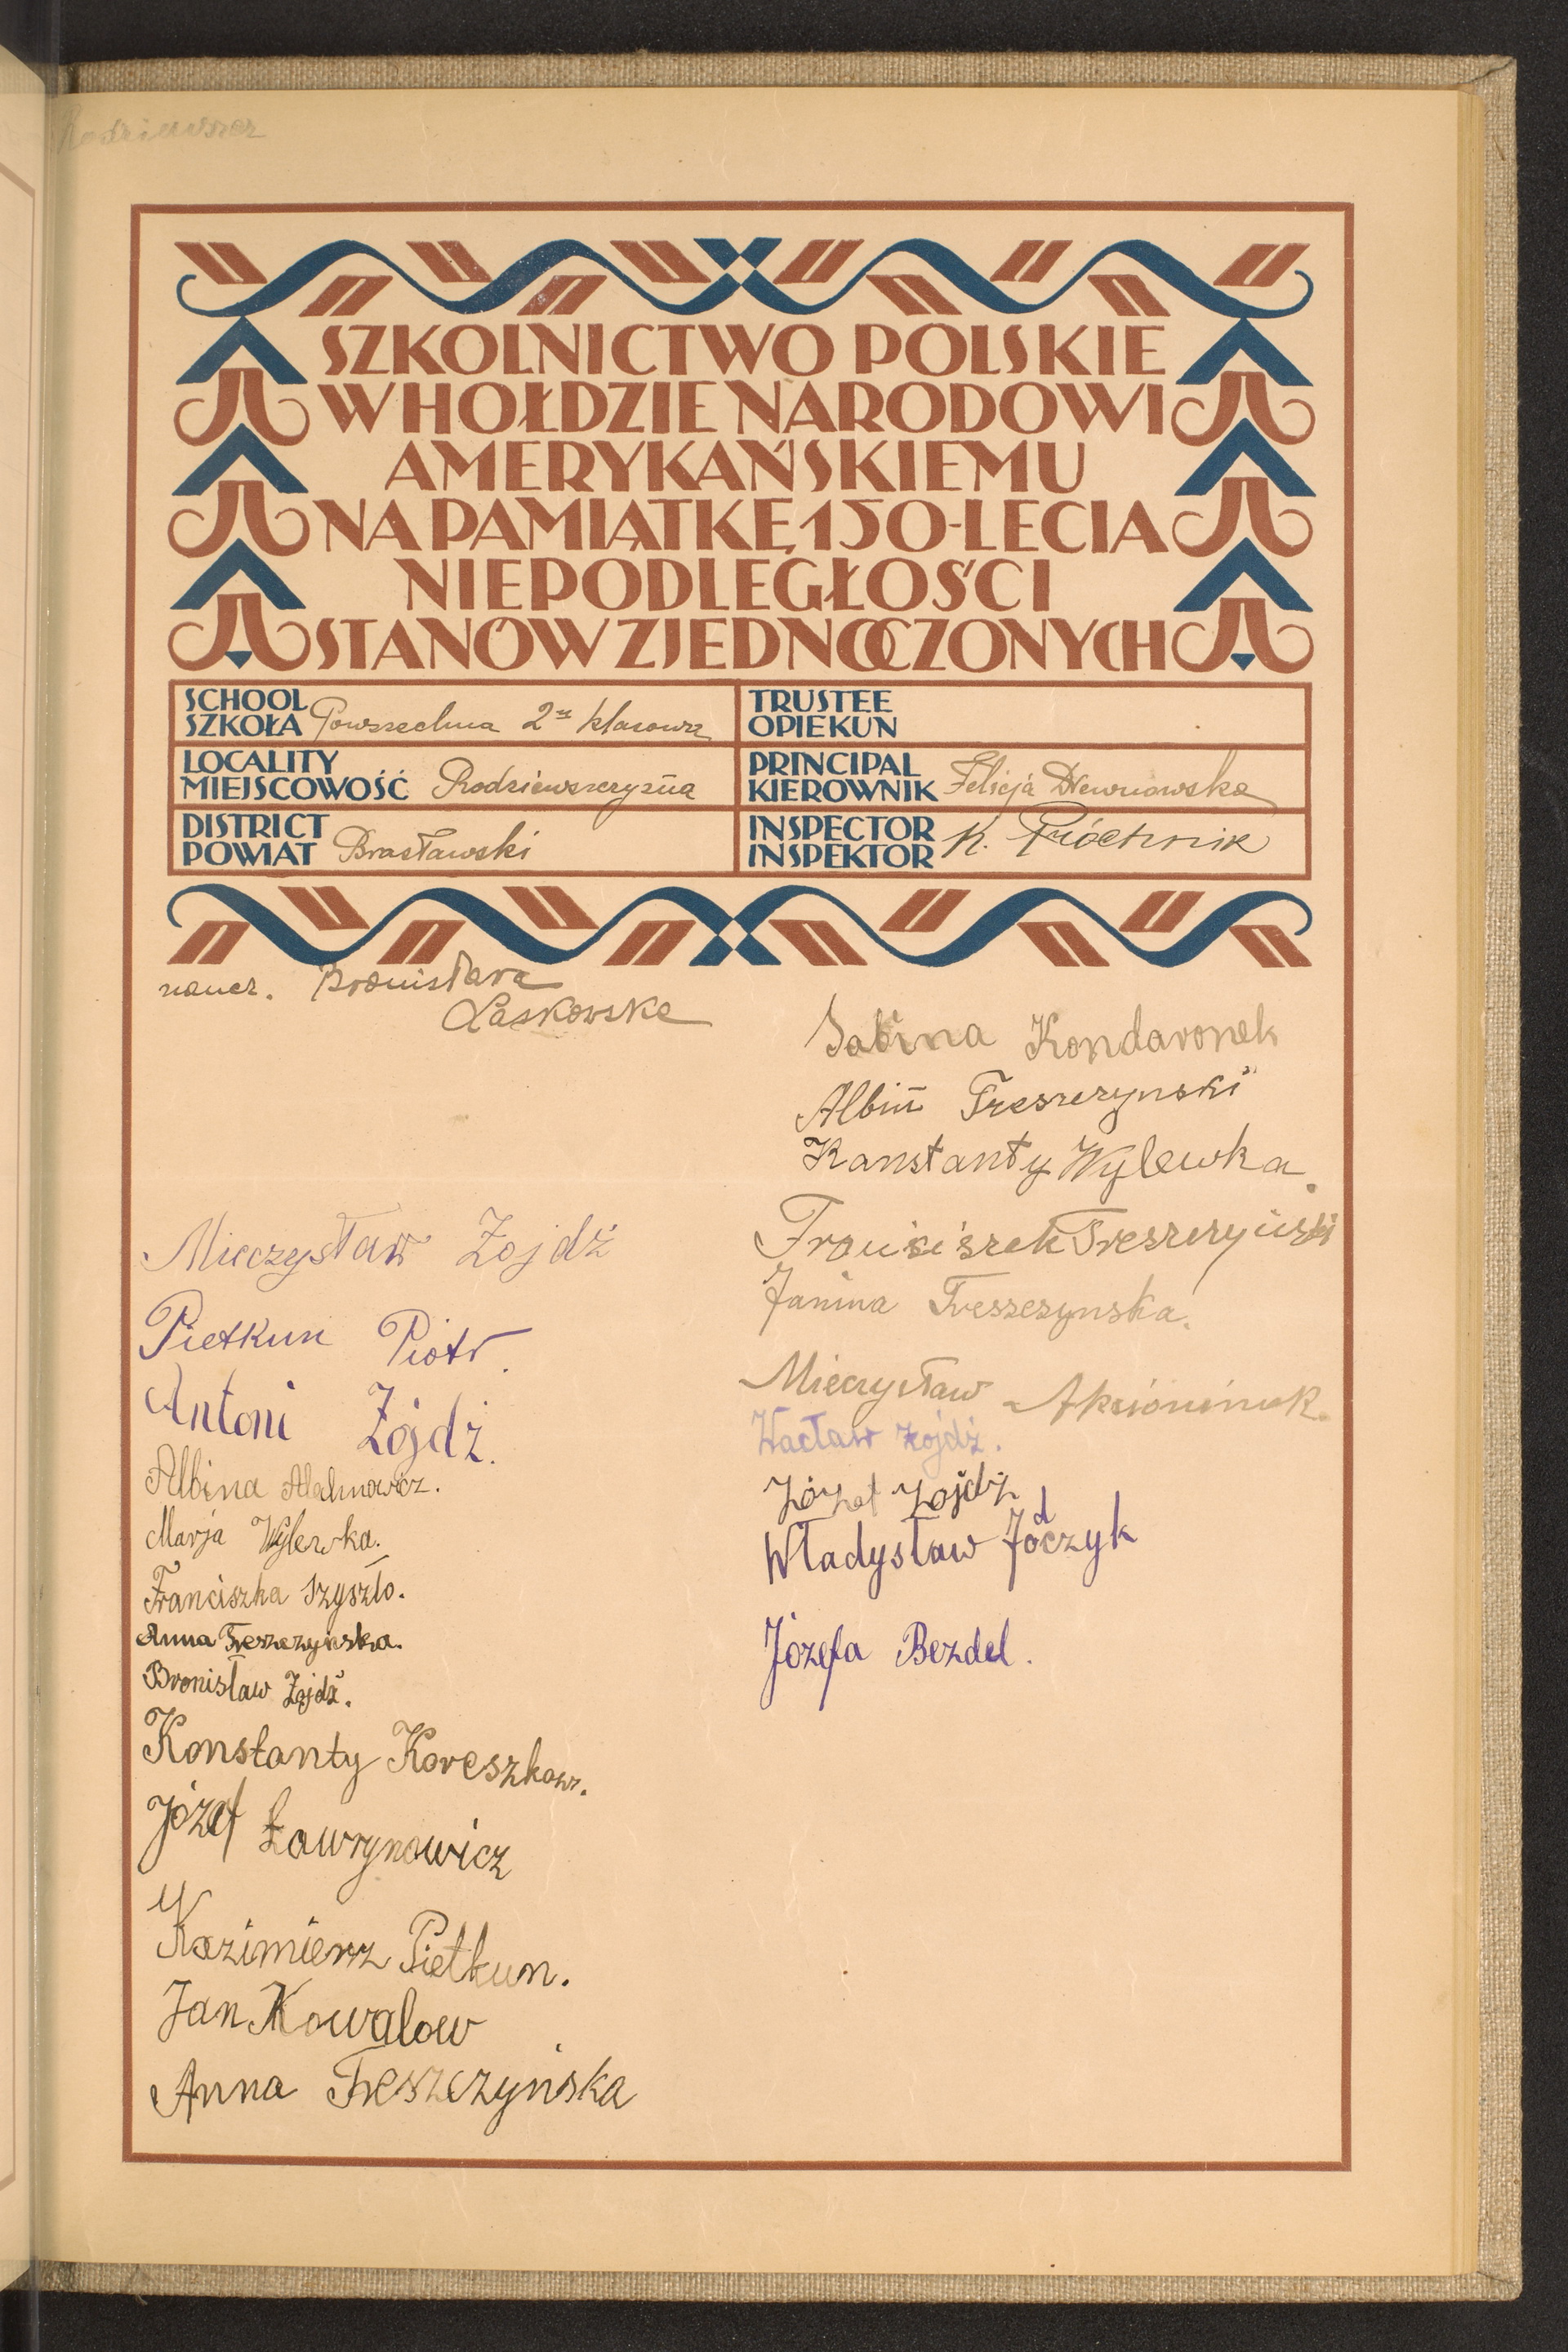 SZKOLNICTWO POLSKIE
W HOŁDZIE NARODOWI
AMERYKAŃSKIEMU
NA PAMIĄTKĘ 150-LECIA
NIEPODLEGŁOŚCI
STANÓW ZJEDNOCZONYCH
SCHOOL
SZKOŁA Powszechna 2 klasowa
TRUSTEE
OPIEKUN
LOCALITY
MIEJSCOWOŚĆ Rodziewszczyzna
PRINCIPAL
KIEROWNIK Felicja
DISTRICT
POWIAT Brasławski
INSPECTOR
INSPEKTOR K. Próchnik
naucz. Bronisława
Laskowska
Mieczysław Zojdź
Pietkun Piotr.
Antoni Zójdź.
Albina
Marja Wylewka.
Franciszka Szyszło.
Anna Treszczyńska.
Bronisław Zojdź.
Konstanty Koreszkow.
Józef Ławrynowicz
Kazimierz Pietkun.
Jan Kowalow
Anna Treszczyńska
Sabina Kondaronek
Albin Treszczynski
Kanstanty Wylewka.
Franciszek Treszczyński
Janina Treszczynska.
Mieczysław
Wacław Zojdź.
Józef Zojdź
Władysław Jodczyk
Józefa Bezdel.